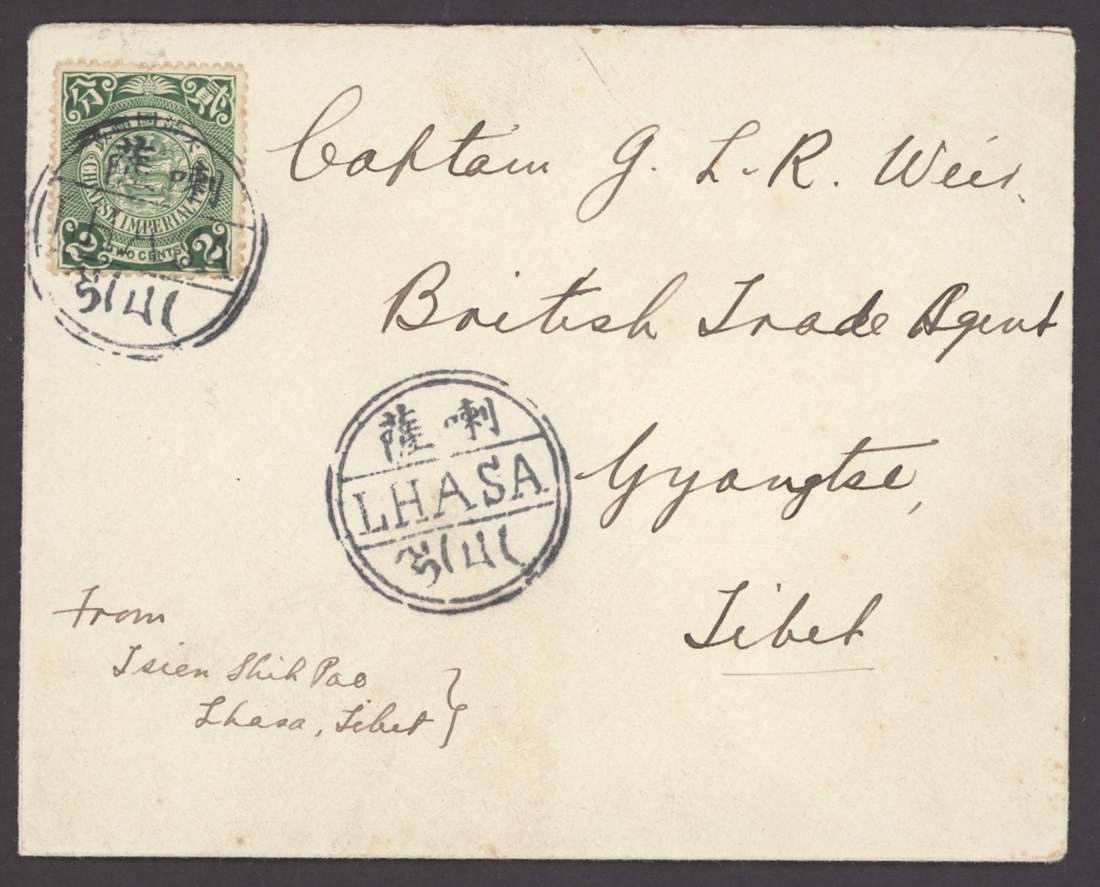 貳分
CHINESE IMPERIAL
2 TWO CENTS 2
喇薩
Captain G. L. R. Weir,
British Trade Agent
Gyangtse,
Tibet
喇薩
LHASA
From
Tsien Shih Pao
Lhasa, Tibet